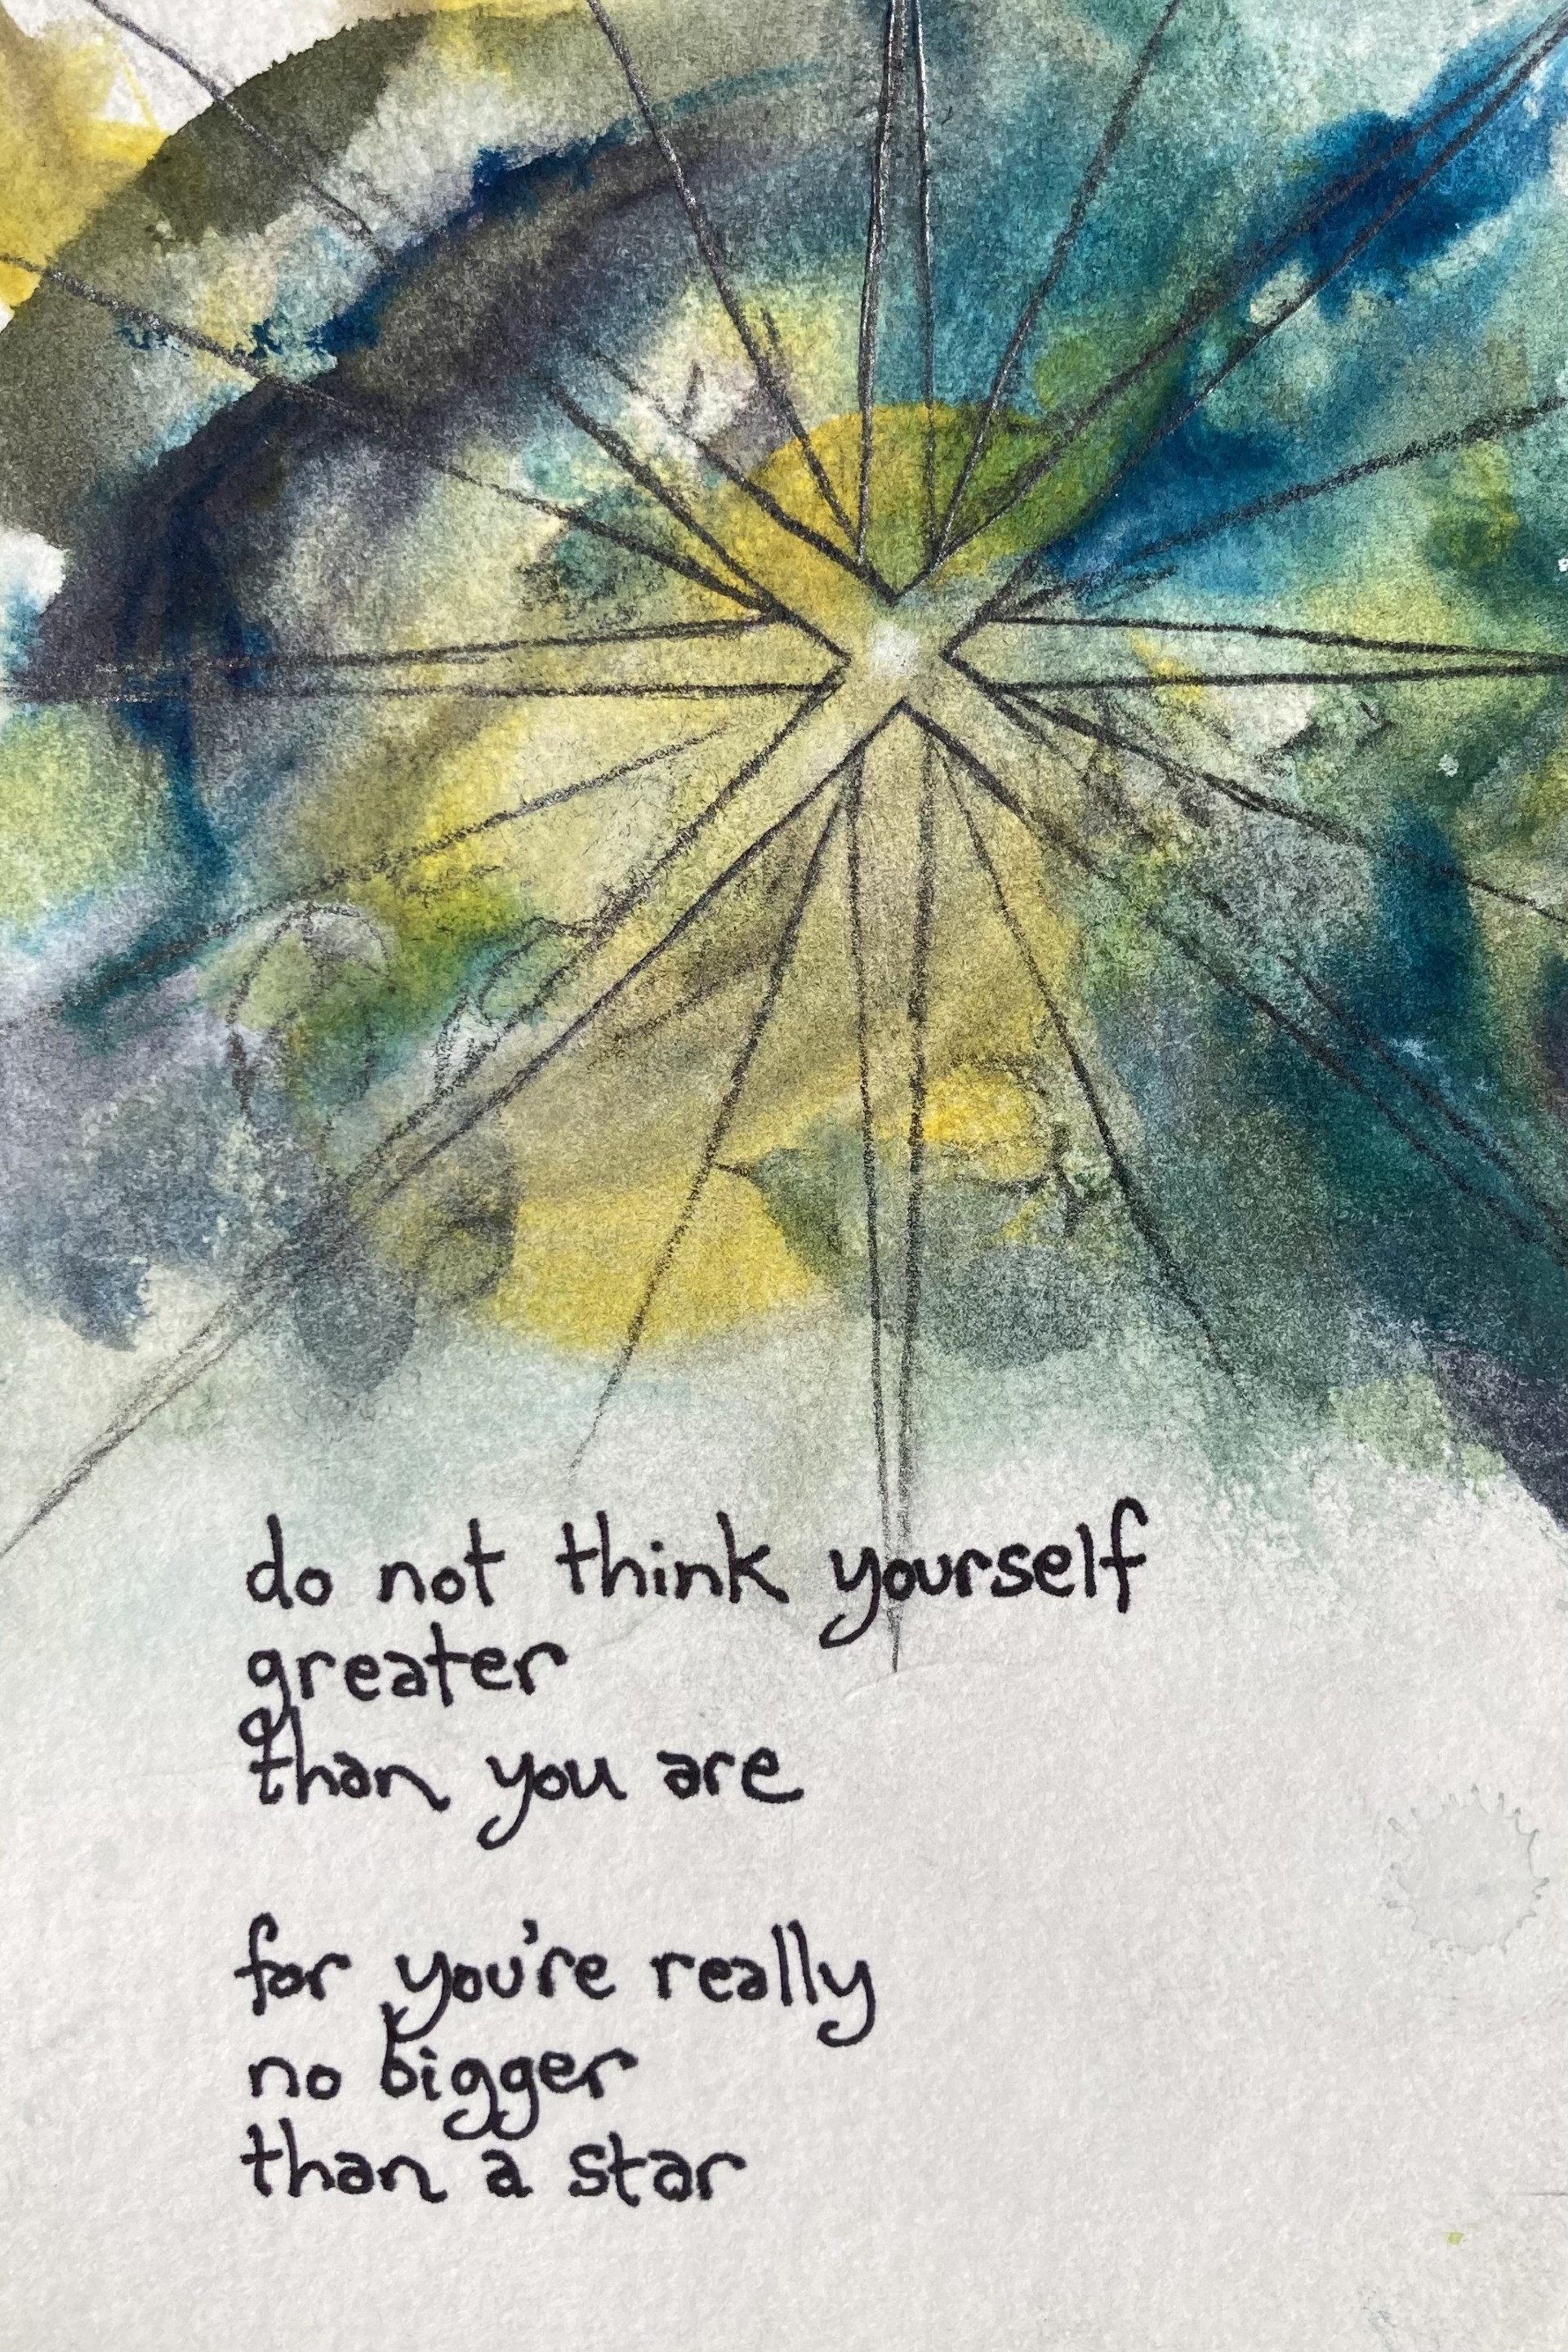 do not think yourself
greater
than you are
for you're really
no bigger
than a star